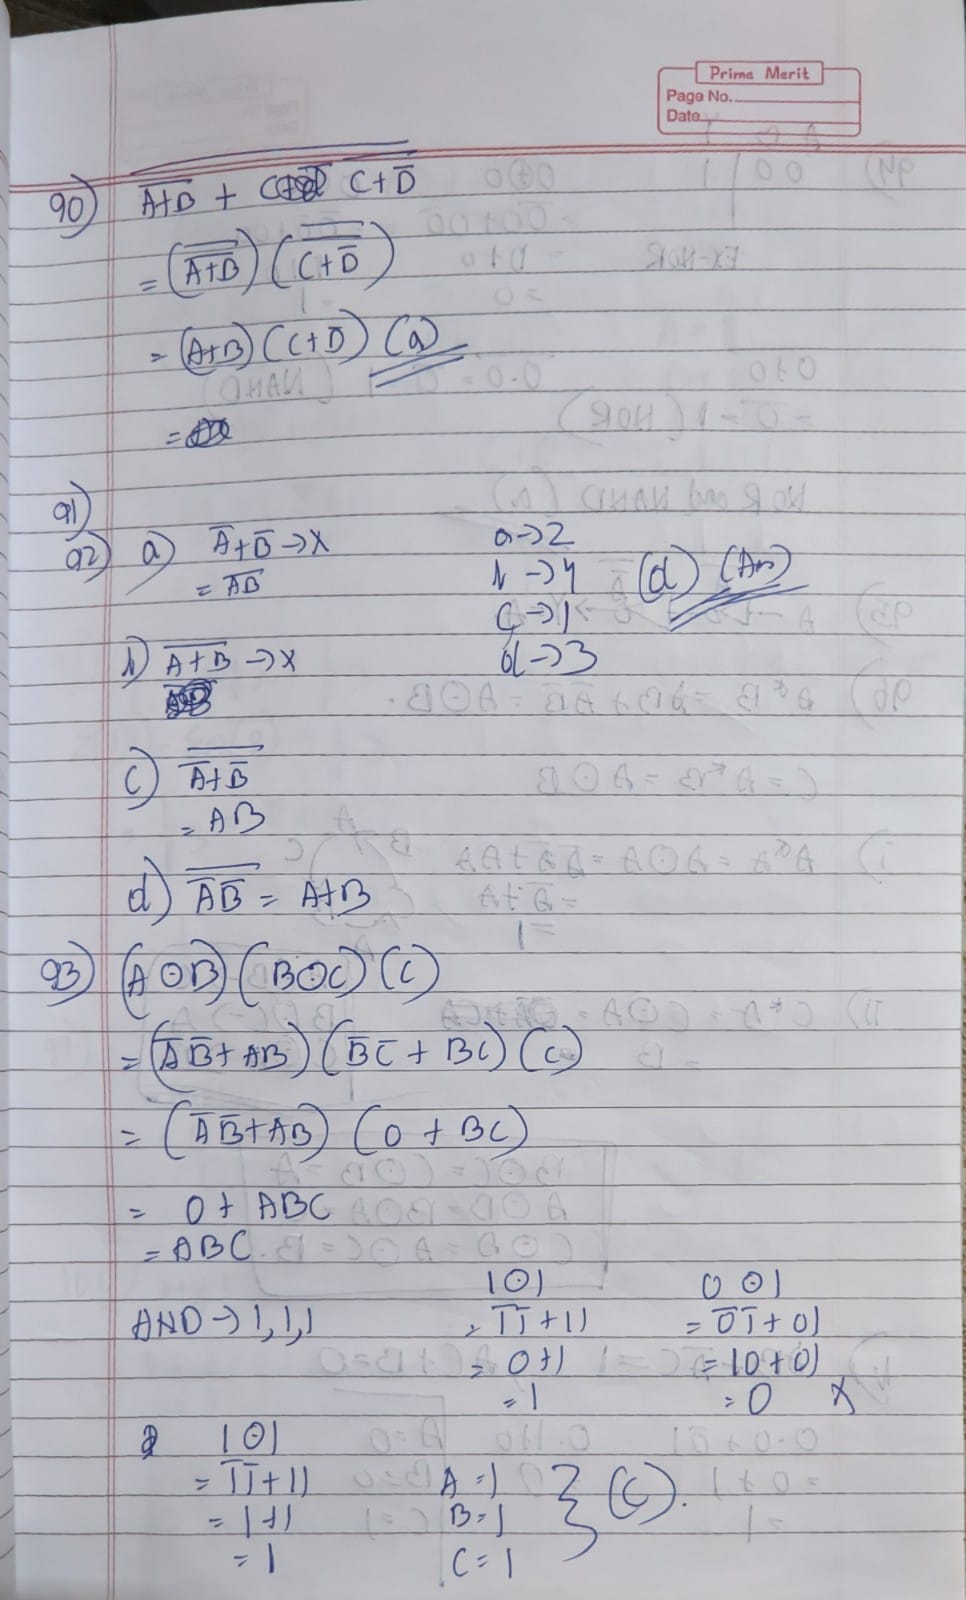 Prime Merit
Page No.
Date
90) A̅+̅B̅ + C + D̅
= (A̅+̅B̅) (C + D̅)
= (A+B) (C+D̅) (a)
=
91)
92) a) A̅ + B̅ → X
= A̅B̅
a → 2
b → 4
c → 1
d → 3
(d) (Ans)
b) A̅+̅B̅ → X
c) A̅+B̅
= AB
d) A̅ B̅ = A+B
93) (A⊙B) (B⊙C) (C)
= (A̅ B̅ + AB) (B̅ C̅ + BC) (C)
= (A̅ B̅ + AB) (0 + BC)
= 0 + ABC
= ABC
AND → 1,1,1
1⊙1
= 1̅ 1̅ + 11
= 0+1
= 1
0⊙1
= 0̅ 1̅ + 01
= 10+01
= 0 X
1⊙1
= 1̅ 1̅ + 11
= 1+1
= 1
A = 1
B = 1
C = 1
} (C).